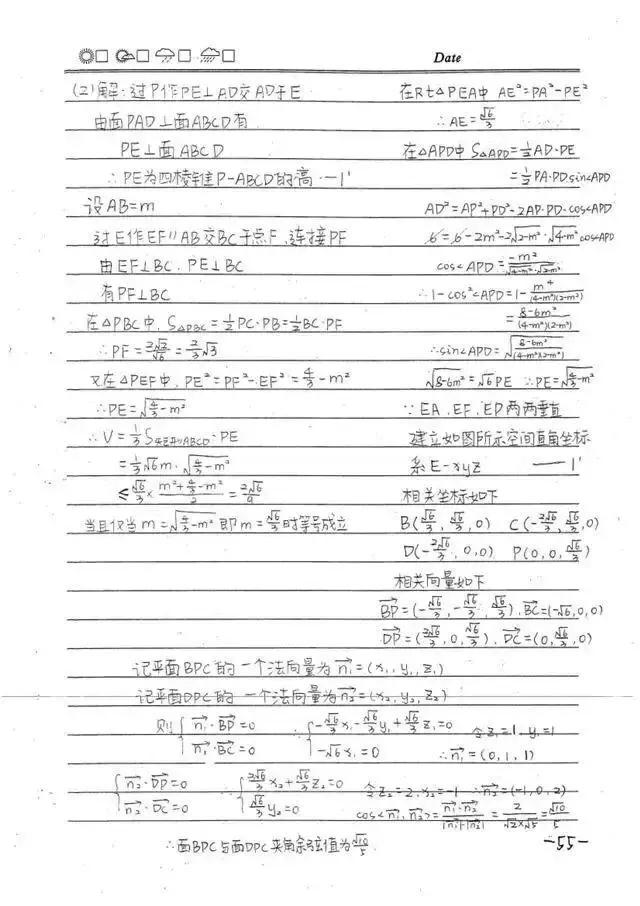 Date
(2)解:过P作PE⊥AD交AD于E
由面PAD⊥面ABCD有
PE⊥面ABCD
∴PE为四棱锥P-ABCD的高 —1'
设AB=m
过E作EF∥AB交BC于点F,连接PF
由EF⊥BC、PE⊥BC
有PF⊥BC
在△PBC中, S△PBC=½PC·PB=½BC·PF
∴PF=2√2/√6=2/3√3
又在△PEF中, PE²=PF²-EF²=4/3-m²
∴PE=√(4/3-m²)
∴V=1/3 S矩形ABCD·PE
=1/3√6m·√(4/3-m²)
≤√6/3×(m²+4/3-m²)/2=2√6/9
当且仅当m=√(4/3-m²)即m=√6/3时等号成立
在Rt△PEA中 AE²=PA²-PE²
∴AE=√6/3
在△APD中 S△APD=½AD·PE
=½PA·PDsin<APD
AD²=AP²+PD²-2AP·PD·cos<APD
6=6-2m²-2√(2-m²)·√(4-m²)cos<APD
cos<APD=-m²/(√(4-m²)·√(2-m²))
∴1-cos²<APD=1-m⁴/((4-m²)(2-m²))
=(8-6m²)/((4-m²)(2-m²))
∴sin<APD=√((8-6m²)/((4-m²)(2-m²)))
√(8-6m²)=√6PE ∴PE=√(4/3-m²)
∵EA、EF、ED两两垂直
建立如图所示空间直角坐标
系E-xyz —1'
相关坐标如下
B(√6/3,√6/3,0) C(-2√6/3,√6/3,0)
D(-2√6/3,0,0) P(0,0,√6/3)
相关向量如下
BP=(-√6/3,-√6/3,√6/3),BC=(-√6,0,0)
DP=(2√6/3,0,√6/3)、DC=(0,√6/3,0)
记平面BPC的一个法向量为n₁=(x₁,y₁,z₁)
记平面DPC的一个法向量为n₂=(x₂,y₂,z₂)
则{n₁·BP=0 ∴{-√6/3x₁-√6/3y₁+√6/3z₁=0 令z₁=1,y₁=1
n₁·BC=0 -√6x₁=0 ∴n₁=(0,1,1)
{n₂·DP=0 {2√6/3x₂+√6/3z₂=0 令z₂=2,x₂=-1 ∴n₂=(-1,0,2)
n₂·DC=0 √6/3y₂=0 cos<n₁,n₂>=n₁·n₂/|n₁|·|n₂|=2/(√2×√5)=√10/5
∴面BPC与面DPC夹角余弦值为√10/5
-55-